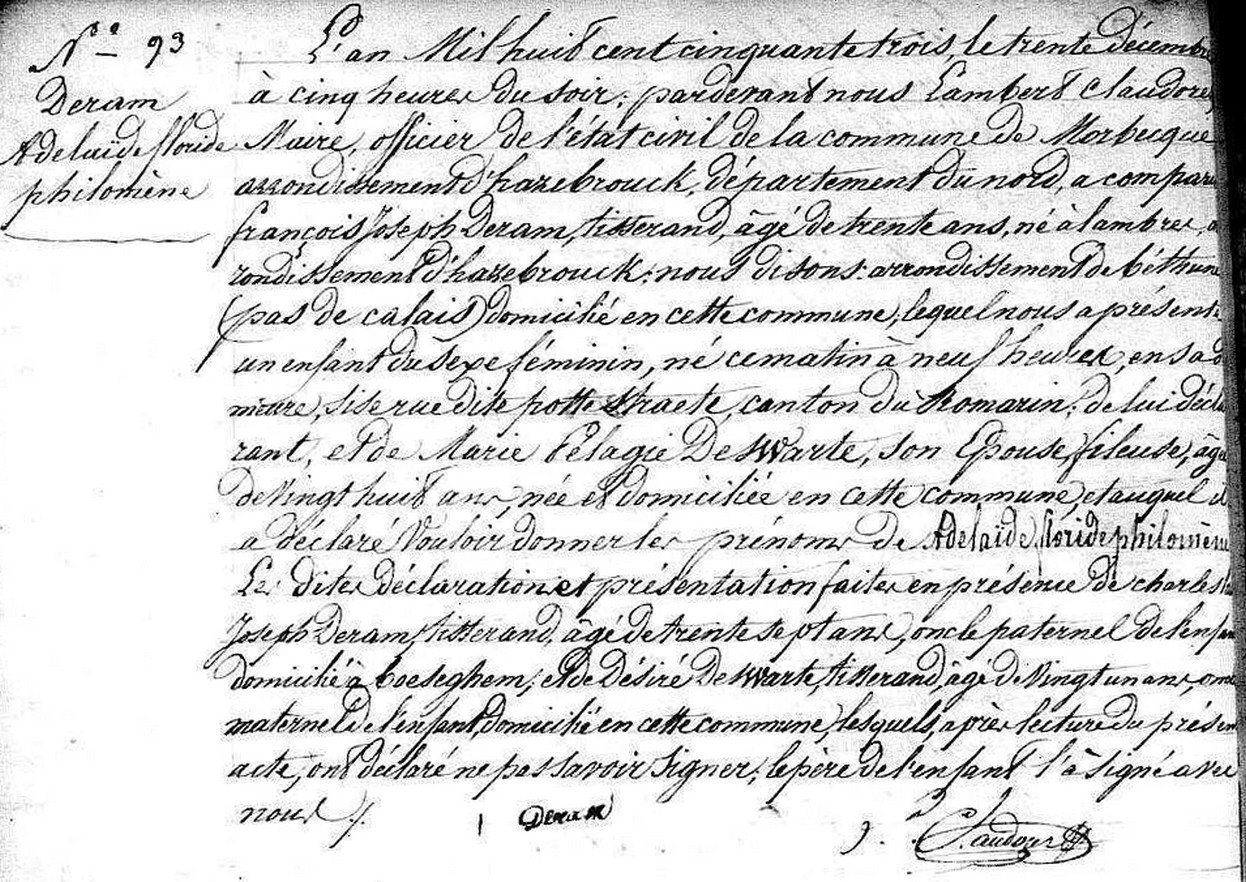 N.º 93
Deram
Adelaïde floride
philomène
L'an Mil huit cent cinquante trois, le trente décembre
à cinq heures du soir; pardevant nous Lambert Claudorez
Maire, officier de l'état civil de la commune de Morbecque
arrondissement d'hazebrouck, département du nord, a comparu
françois Joseph Deram, tisserand, âgé de trente ans, né à lambres, a
rondissement d'hazebrouck; nous disons: arrondissement de béthune
(pas de calais) domicilié en cette commune, lequel nous a présenté
un enfant du sexe féminin, né ce matin à neuf heures, en sa d
meure, sise rue dite potte straete, canton du Romarin; de lui décla
rant, et de Marie Pélagie Deswarte, son Epouse, fileuse, âgée
de vingt huit ans, née et domiciliée en cette commune, et auquel il
a déclaré vouloir donner les prénoms de Adelaïde, floride philomène
Les dites déclaration et présentation faites en présence de charles
Joseph Deram, tisserand, âgé de trente sept ans, oncle paternel de l'enfan
domicilié à boeseghem; et de Désiré Deswarte, tisserand, âgé de vingt un ans, oncle
maternel de l'enfant, domicilié en cette commune, lesquels, après lecture du présen
acte, ont déclaré ne pas savoir signer; le père de l'enfant l'a signé avec
nous ./.
Deram